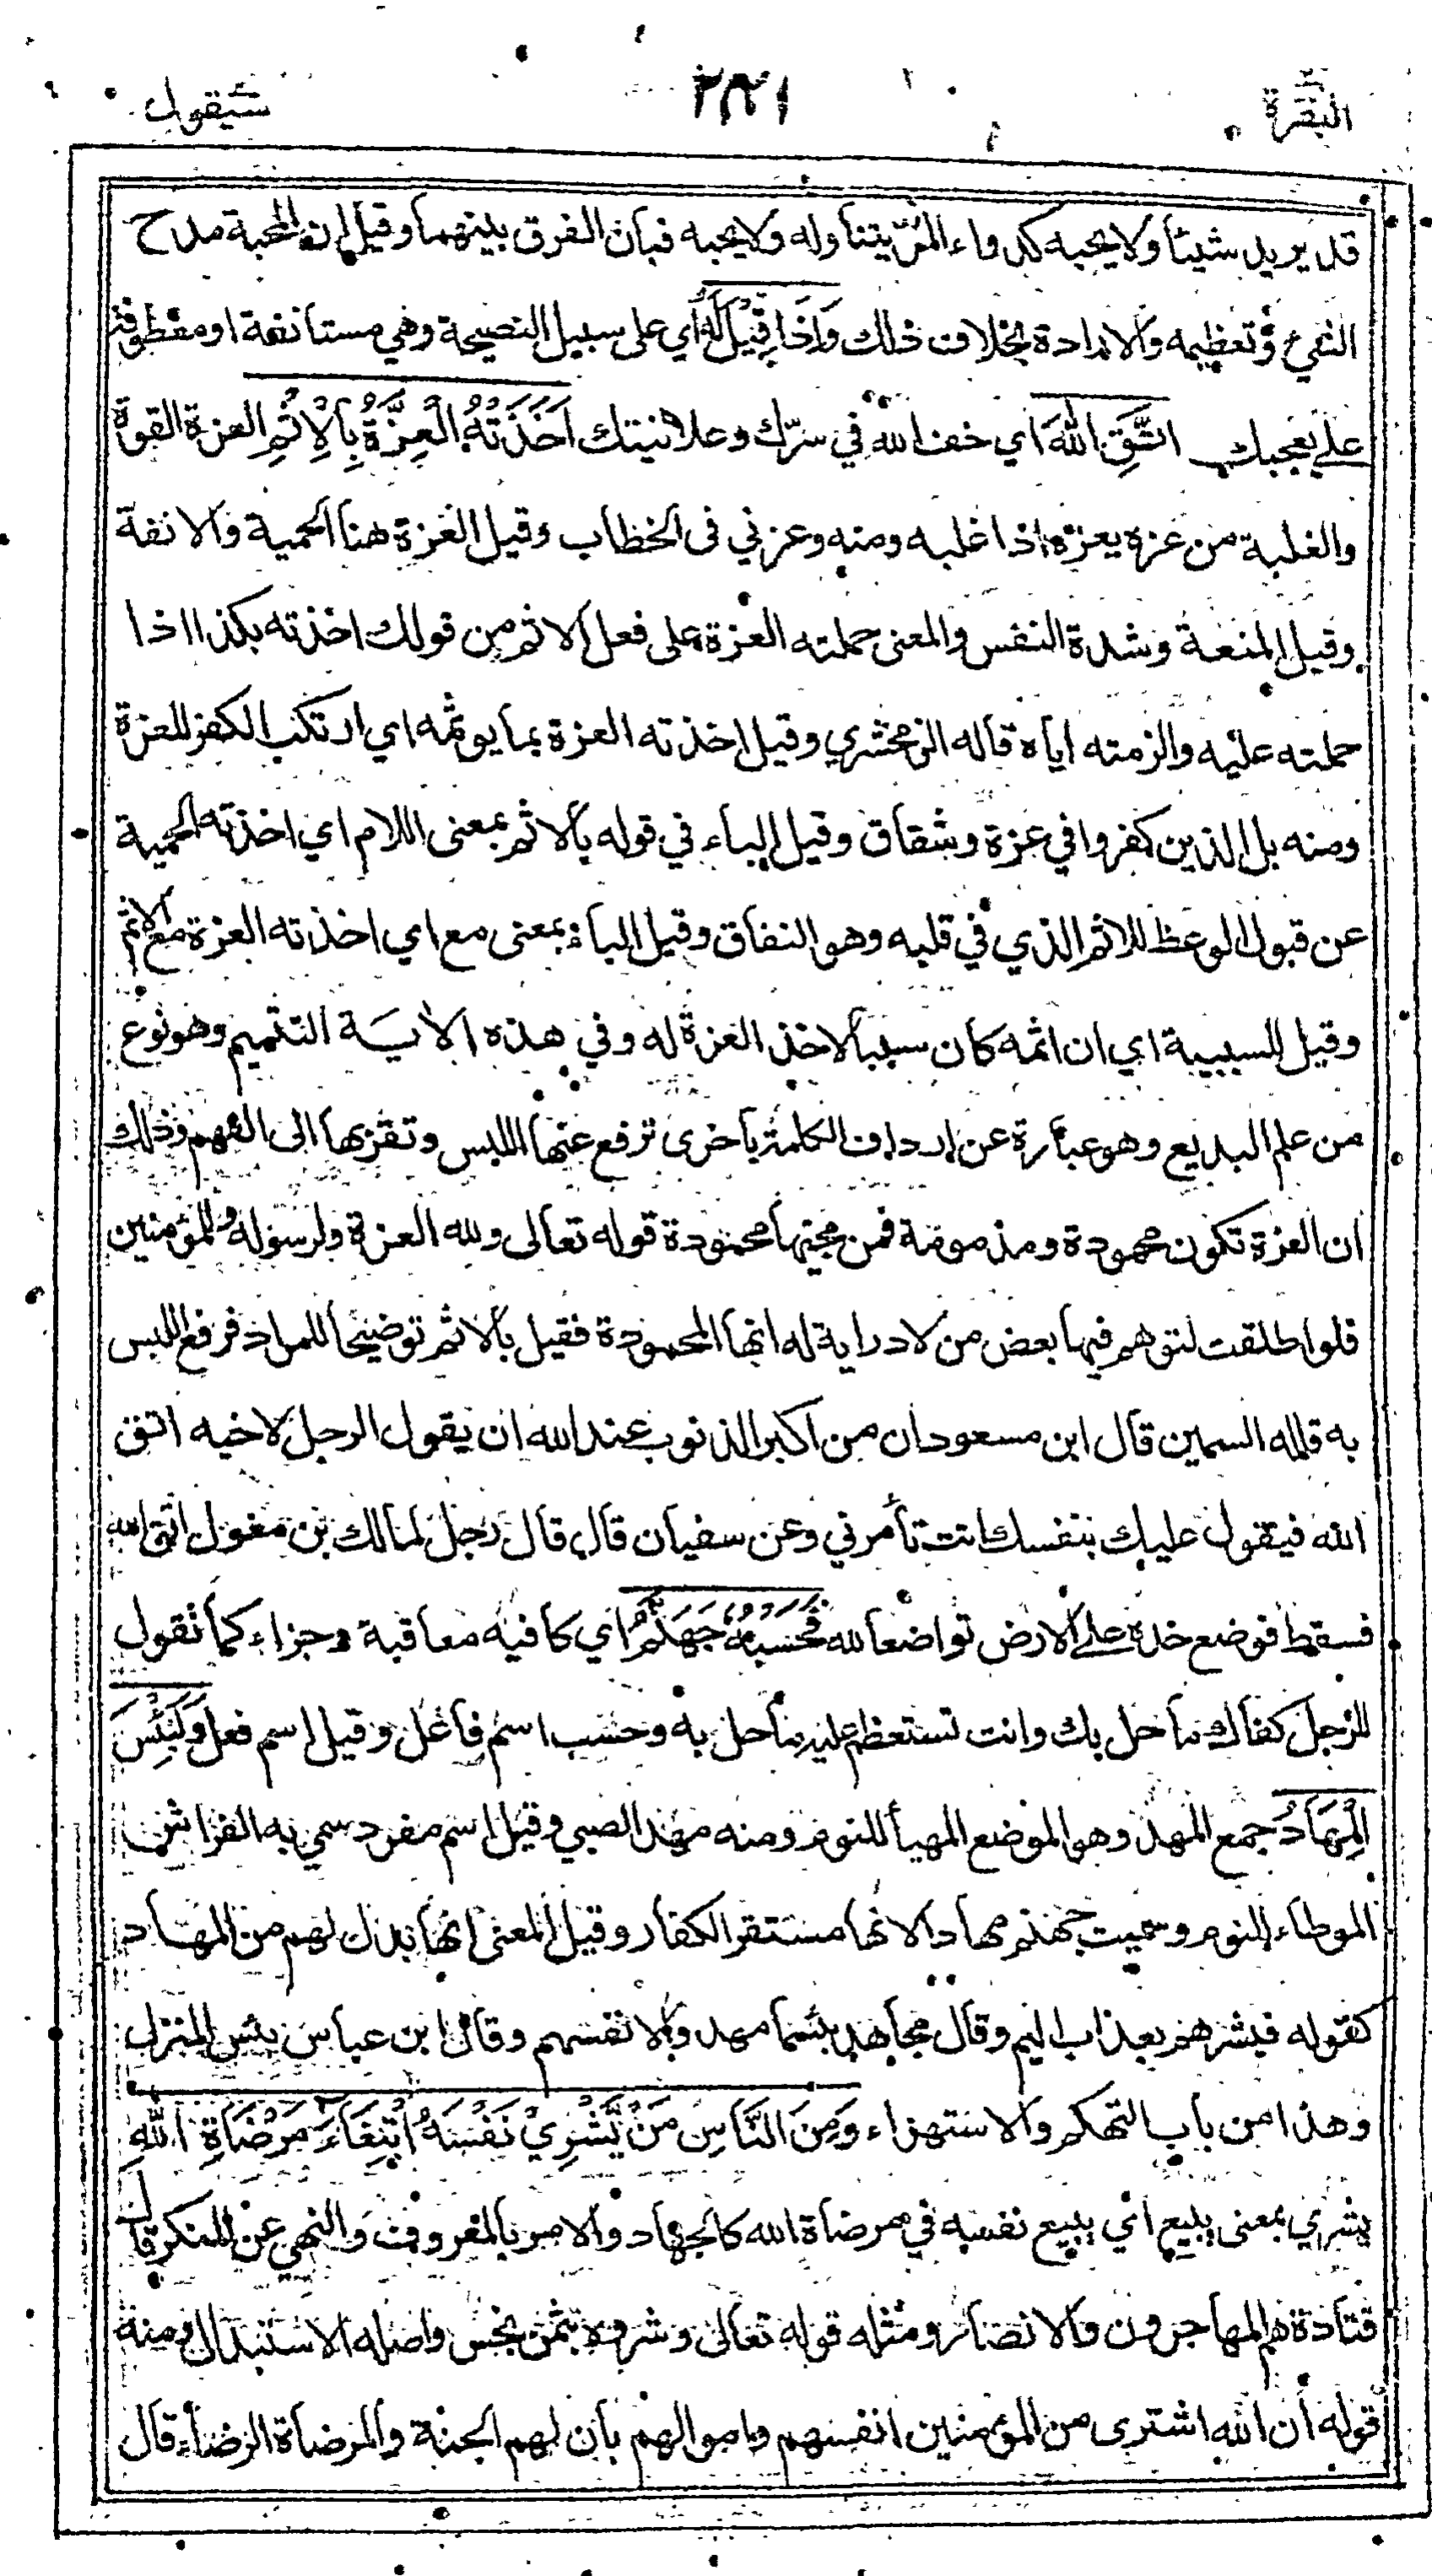 البقرة ٢٨١ سيقول
قد يريد شيئا ولا يحبه كدواء المر يتناوله ولا يحبه فبان الفرق بينهما وقيل ان المحبة مدح
الشيء وتعظيمه والارادة بخلاف ذلك وَاِذَا قِيْلَ لَهُ اي على سبيل النصيحة وهي مستانفة او معطوفة
على يعجبك اتَّقِ اللهَ اي خف الله في سرّك وعلانيتك اَخَذَتْهُ الْعِزَّةُ بِالْاِثْمِ العزة القوة
والغلبة من عزه يعزه اذا غلبه ومنه وعزني في الخطاب وقيل العزة هنا الحمية والانفة
وقيل المنعة وشدة النفس والمعنى حملته العزة على فعل الاثم من قولك اخذته بكذا اذا
حملته عليه والزمته اياه قاله الزمخشري وقيل اخذته العزة بما يوثمه اي ارتكب الكفر للعزة
ومنه بل الذين كفروا في عزة وشقاق وقيل الباء في قوله بالاثم بمعنى اللام اي اخذته الحمية
عن قبول الوعظ للاثم الذي في قلبه وهو النفاق وقيل الباء بمعنى مع اي اخذته العزة مع الاثم
وقيل للسببية اي ان اثمه كان سببا لاخذ العزة له وفي هذه الاية التتميم وهو نوع
من علم البديع وهو عبارة عن ارداف الكلمة باخرى ترفع عنها اللبس وتقربها الى الفهم وذلك
ان العزة تكون محمودة ومذمومة فمن مجيئها محمودة قوله تعالى ولله العزة ولرسوله وللمؤمنين
فلو اطلقت لتوهم فيها بعض من لا دراية له انها المحمودة فقيل بالاثم توضيحا للمراد فرفع اللبس
به قاله السمين قال ابن مسعود ان من اكبر الذنوب عند الله ان يقول الرجل لاخيه اتق
الله فيقول عليك بنفسك انت تأمرني وعن سفيان قال قال رجل لمالك بن مغول اتق الله
فسقط فوضع خده على الارض تواضعا لله فَحَسْبُهُ جَهَنَّمُ اي كافيه معاقبة وجزاء كما تقول
للرجل كفاك ما حل بك وانت تستعظم عليه ما حل به وحسب اسم فاعل وقيل اسم فعل وَلَبِئْسَ
الْمِهَادُ جمع المهد وهو الموضع المهيأ للنوم ومنه مهد الصبي وقيل اسم مفرد سمي به الفراش
الموطاء للنوم وسميت جهنم مهادا لانها مستقر الكفار وقيل المعنى انها بدل لهم من المهاد
كقوله فبشرهم بعذاب اليم وقال مجاهد بئسما مهدوا لانفسهم وقال ابن عباس بئس المنزل
وهذا من باب التهكم والاستهزاء وَمِنَ النَّاسِ مَنْ يَّشْرِيْ نَفْسَهُ ابْتِغَاءَ مَرْضَاةِ اللهِ
يشري بمعنى يبيع اي يبيع نفسه في مرضاة الله كالجهاد والامر بالمعروف والنهي عن المنكر قال
قتادة هم المهاجرون والانصار ومثله قوله تعالى وشروه بثمن بخس واصله الاستبدال ومنه
قوله ان الله اشترى من المؤمنين انفسهم واموالهم بان لهم الجنة والمرضاة الرضاء قال